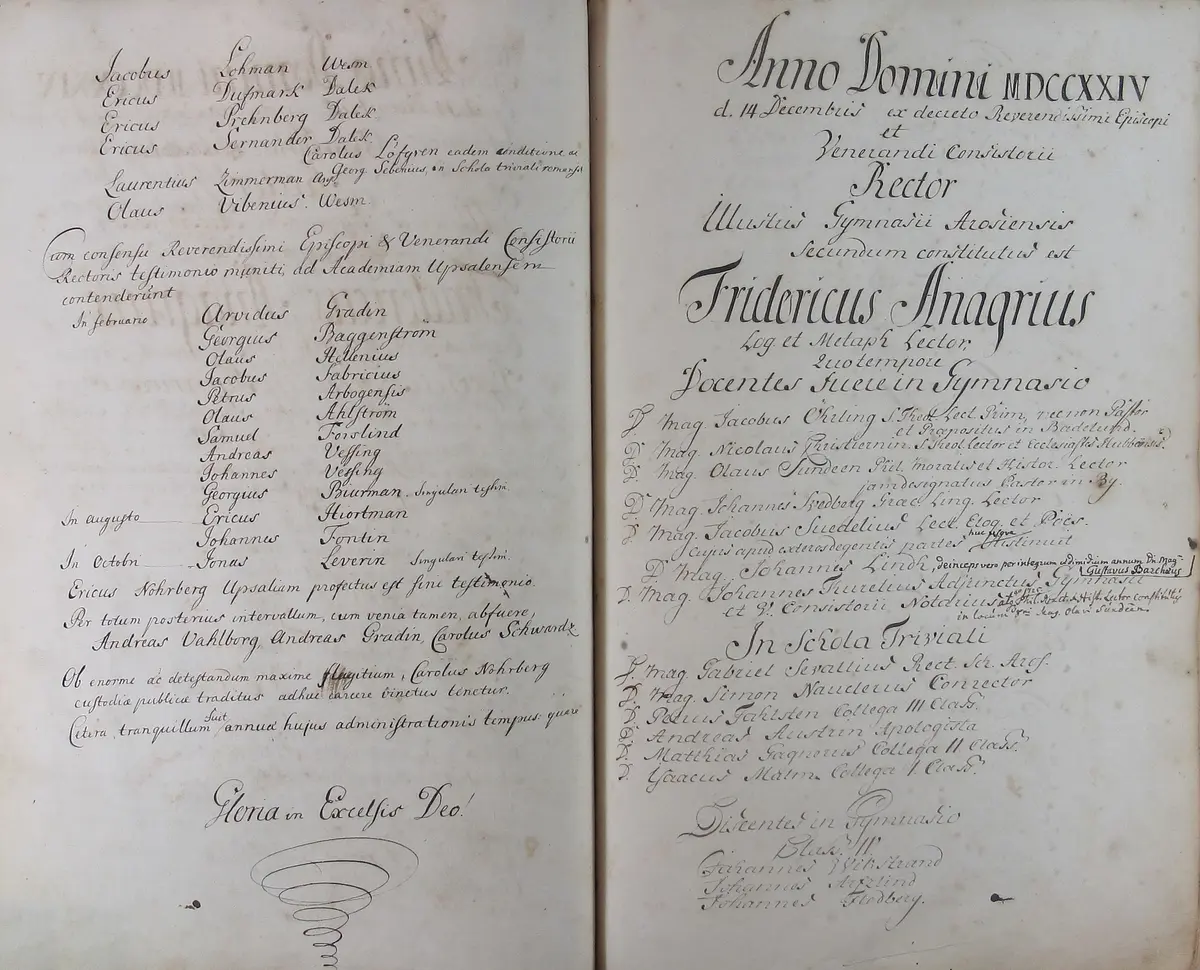 Jacobus Lohman Wesm
Ericus Dufmark Dalek
Ericus Prehnberg Dalek
Ericus Sernander Dalek
Carolus Löfgren eadem conditione ac
Georg Sebenius, in Schola triviali romansit
Laurentius Zimmerman
Olaus Vibenius. Wesm.
Cum consensu Reverendissimi Episcopi & Venerandi Consistorii
Rectoris testimonio muniti, ad Academiam Upsalensem
contenderunt
In februario Arvidus Gradin
Georgius Baggenström
Olaus Helenius
Jacobus Fabricius
Petrus Arbogensis
Olaus Ahlström
Samuel Forslind
Andreas Vefsing
Johannes Vefsing
Georgius Biurman singulari testim.
In augusto Ericus Hiortman
Johannes Fontin
In Octobri Jonas Leverin singulari testim.
Ericus Nohrberg Upsaliam profectus est sine testimonio.
Per totum posterius intervallum, cum venia tamen, abfuere,
Andreas Vahlborg, Andreas Gradin, Carolus Schwardz
Ob enorme ac detestandum maxime flagitium, Carolus Nohrberg
custodiæ publicæ traditus adhuc carcere vinctus tenetur.
Cetera, tranquillum fuit annuæ hujus administrationis tempus: quare
Gloria in Excelsis Deo!
Anno Domini MDCCXXIV
d. 14 Decembris ex decreto Reverendissimi Episcopi
et
Venerandi Consistorii
Rector
Illustris Gymnasii Arosiensis
Secundum constitutus est
Fridericus Anagrius
Log et Metaph Lector
Quo tempore
Docentes fuere in Gymnasio
D. Mag. Jacobus Öhrling S. Theol. Lect. Prim. nec non Pastor
et Præpositus in Badelund.
D. Mag. Nicolaus Christiernin S. Theol. Lector et Ecclesiastes
D. Mag. Olaus Sundeen Phil. Moralis et Histor. Lector
jam designatus Pastor in By.
D. Mag. Johannes Svedborg Græc. Ling. Lector
D. Mag. Jacobus Suedelius Lect. Eloq. et Poës.
cujus apud exteros degentis partes huc usque sustinuit
D. Mag. Johannes Lindh, deinceps vero per integrum et dimidium annum Dn. Mag.
Gustavus Barchius
D. Mag. Johannes Turelius Adjunctus Gymnasii
et V. Consistorii Notarius
in locum Mag. Olavi Sundeen.
In Schola Triviali
D. Mag. Gabriel Sevallius Rect. Sch. Aros.
D. Mag. Simon Nauclerus Conrector
D. Petrus Fahlsten Collega III Class.
D. Andreas Austrin Apologista
D. Matthias Gagnerus Collega II Class.
D. Ysaacus Malm Collega I. Class.
Discentes in Gymnasio
Class. IV
Johannes Wikstrand
Johannes
Johannes Flodberg.